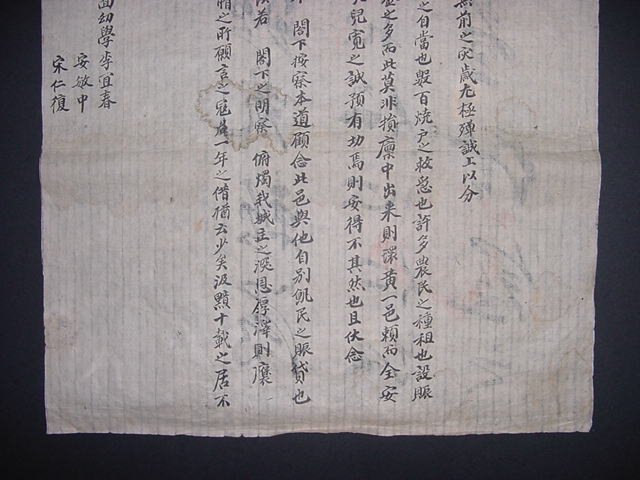 無前之灾歲尤極殫誠上以分
之自當也毀百燒戶之救急也許多農民之種租也設賑
之多而此莫非損廩中出來則環黃一邑賴而全安
兒寬之誠預有功焉則安得不其然也且伏念
閤下按察本道顧念此邑與他自別飢民之賑貸也
若 閤下之明察 俯燭我城主之深恩厚澤則穰
情之所願言之寇 一年之借猶云少矣汲黯十載之居不
面幼學李宜春
安敏中
宋仁復